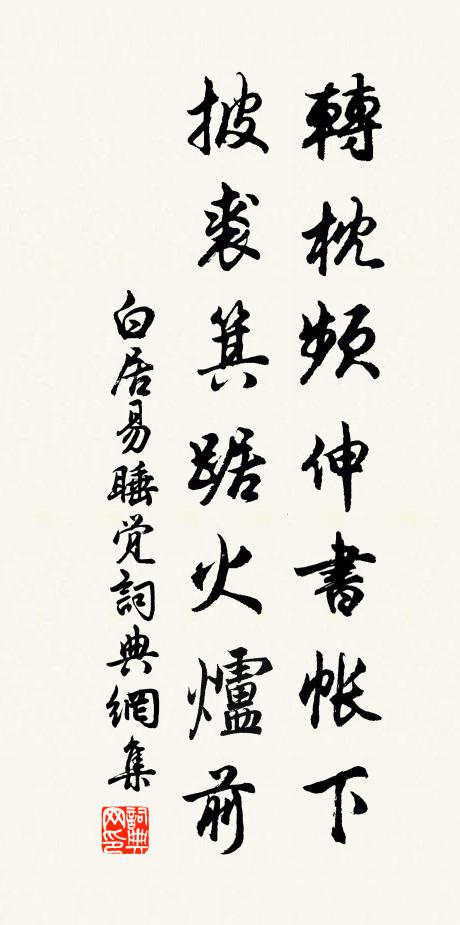 轉枕頻伸書帳下
披裘箕踞火爐前
白居易睡覺詞典網集
詞典网印